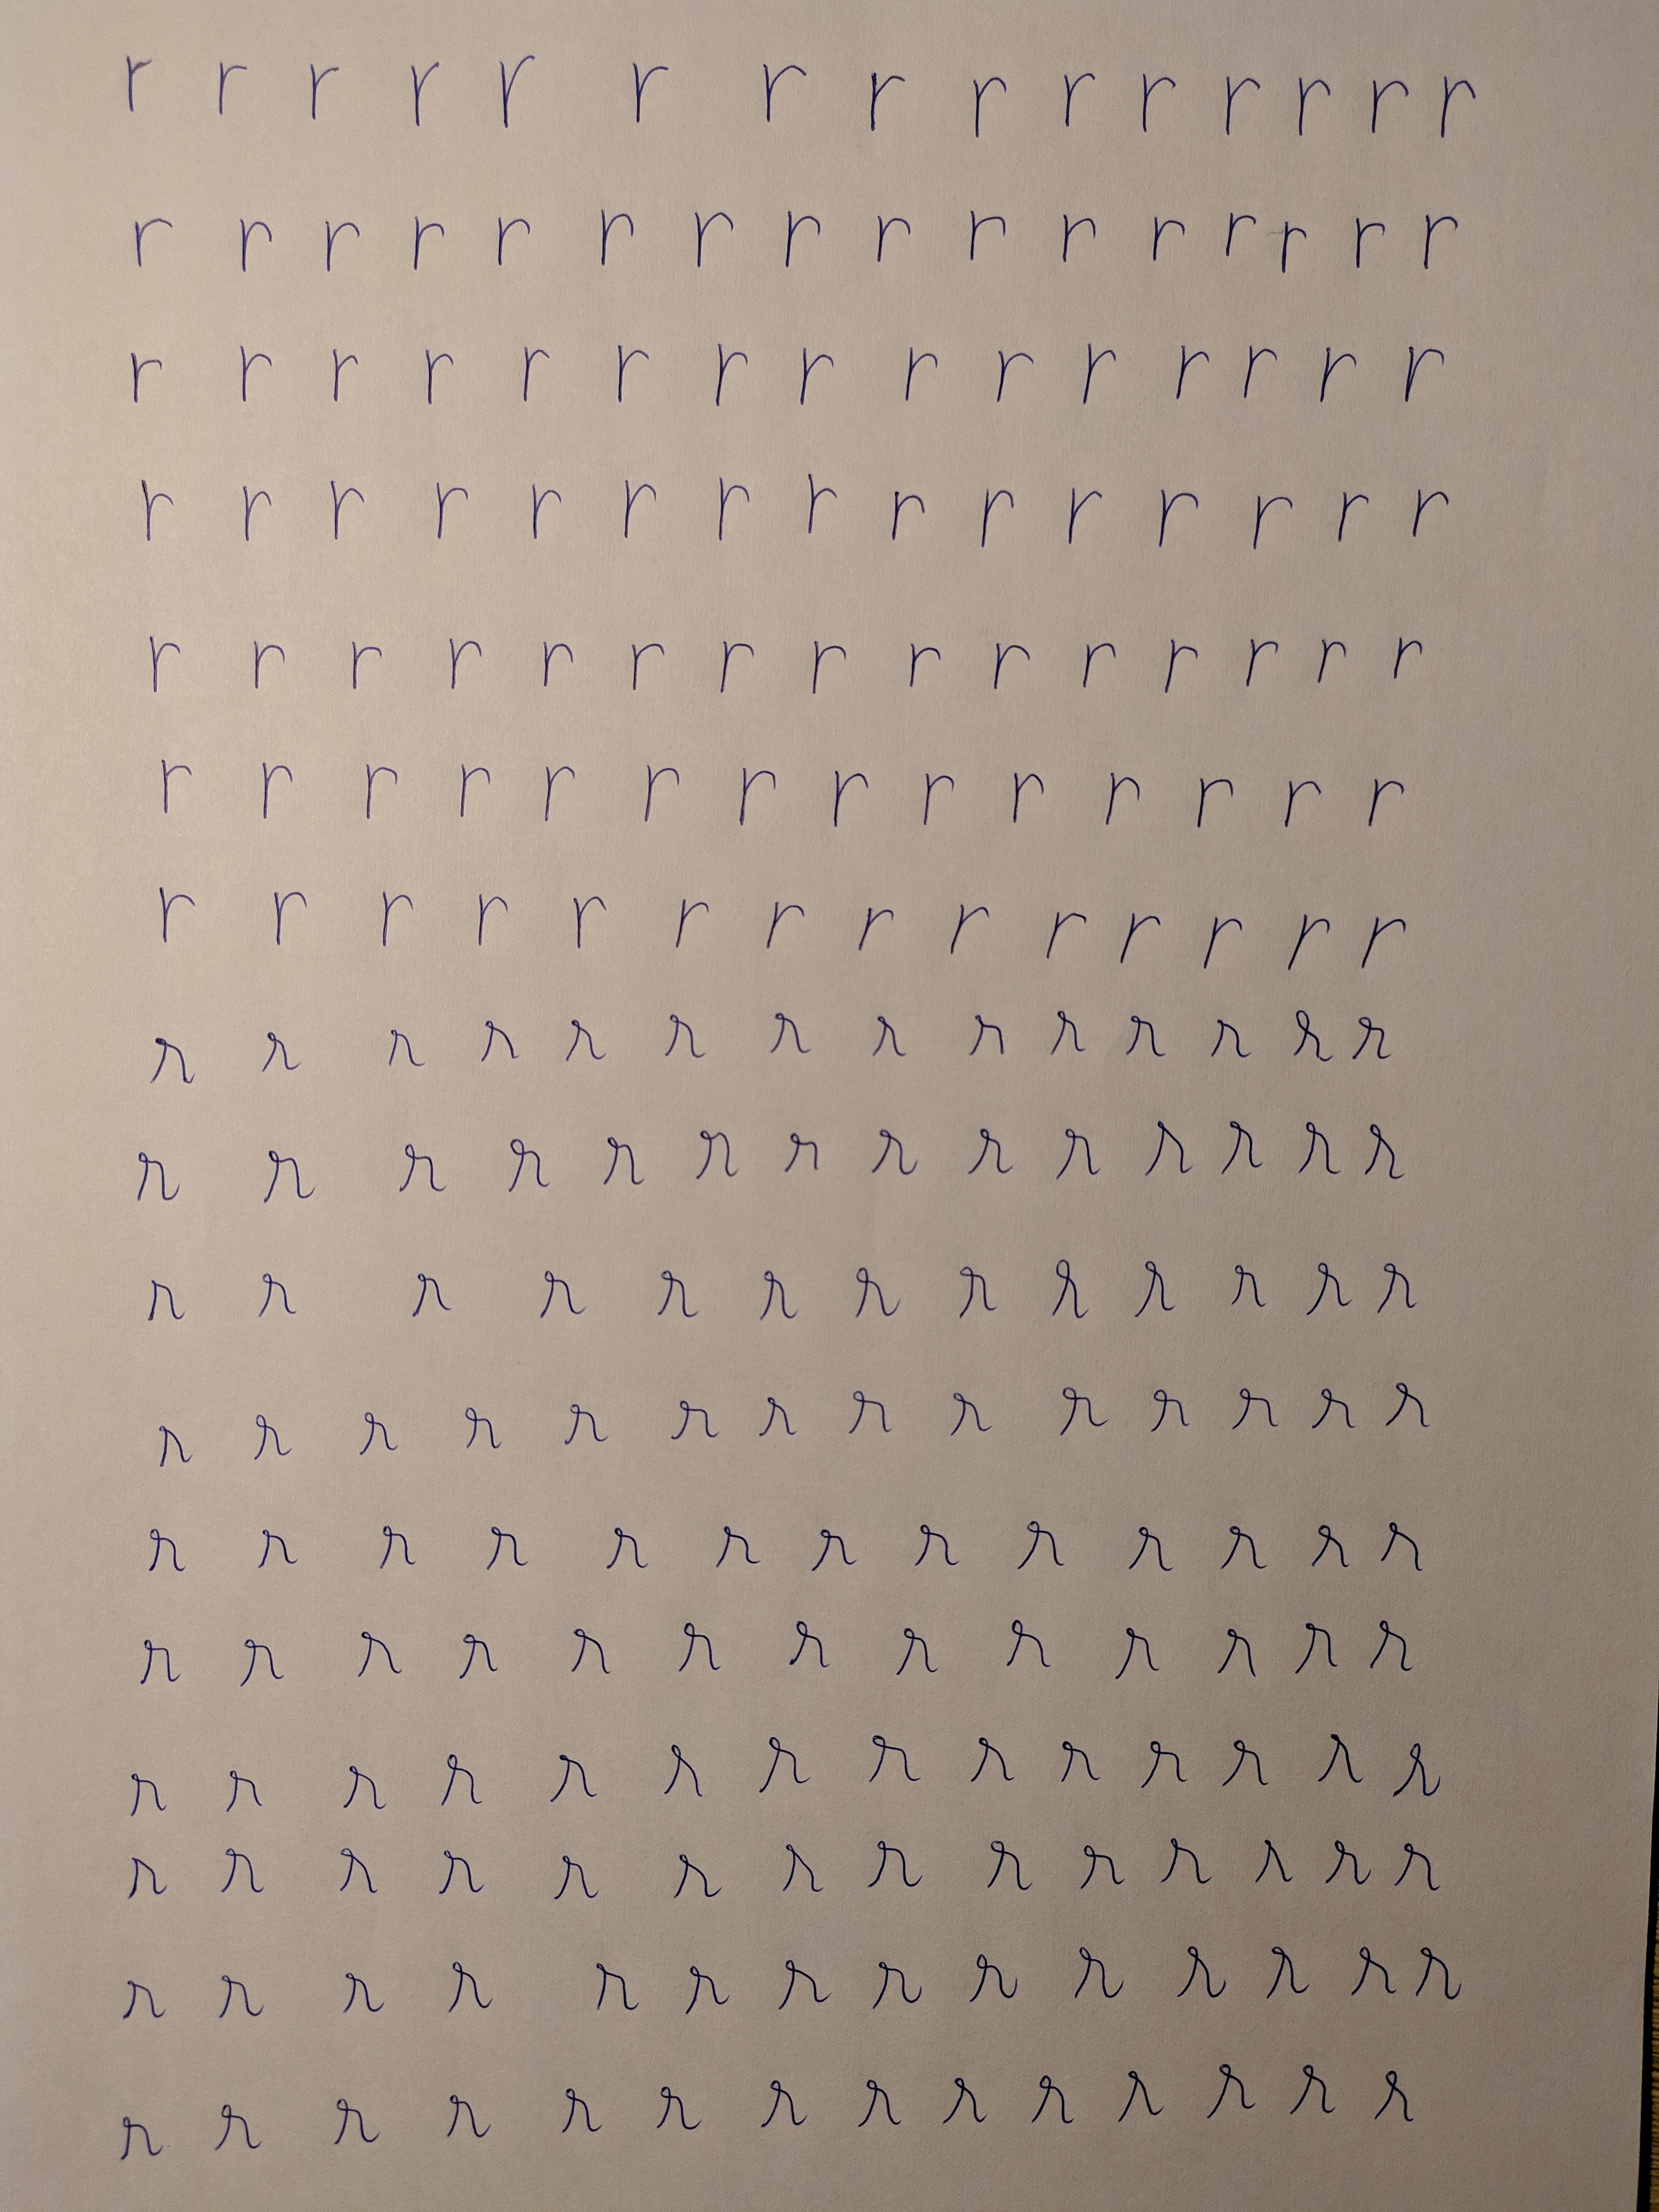 r r r r r r r r r r r r r r r
r r r r r r r r r r r r r r r r
r r r r r r r r r r r r r r r
r r r r r r r r r r r r r r r
r r r r r r r r r r r r r r r
r r r r r r r r r r r r r r
r r r r r r r r r r r r r r
r r r r r r r r r r r r r r
r r r r r r r r r r r r r r
r r r r r r r r r r r r r
r r r r r r r r r r r r r r
r r r r r r r r r r r r r
r r r r r r r r r r r r r
r r r r r r r r r r r r r r
r r r r r r r r r r r r r r
r r r r r r r r r r r r r r
r r r r r r r r r r r r r r